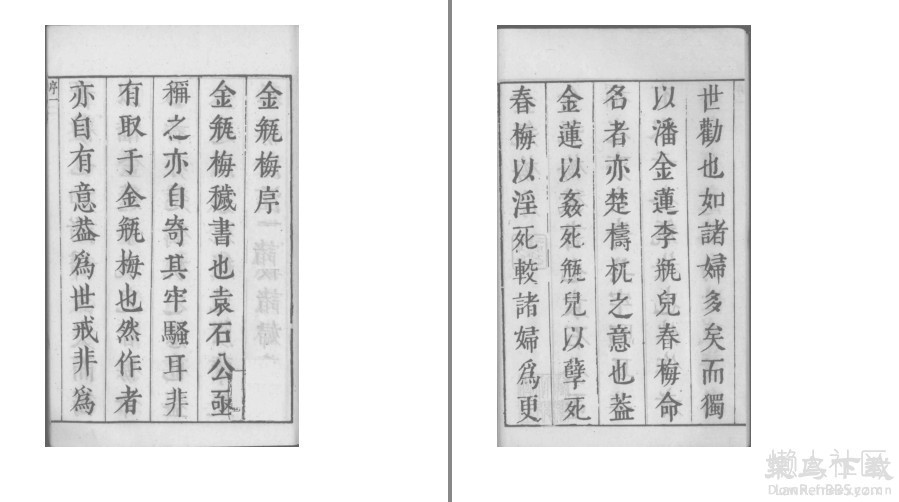 金瓶梅序
金瓶梅穢書也袁石公亟
稱之亦自寄其牢騷耳非
有取于金瓶梅也然作者
亦自有意葢爲世戒非爲
序一
世勸也如諸婦多矣而獨
以潘金蓮李瓶兒春梅命
名者亦楚檮杌之意也葢
金蓮以姦死瓶兒以孽死
春梅以淫死較諸婦爲更